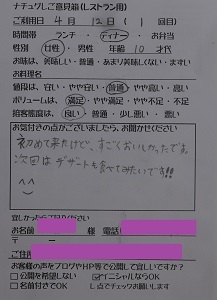 ナチュグレご意見箱(レストラン用)
ご利用日 4月 12日 ( 1 回目)
時間帯 ランチ・ディナー・お弁当
性別 女性・男性 年齢 10 才代
お味は、美味しい・普通・あまり美味しくない・まずい
お料理名
値段は、安い・やや安い・普通・やや高い・高い
ボリュームは、満足・やや満足・やや不足・不足
接客態度は、良い・普通・少し悪い・悪い
お気付きの点がございましたら、お聞かせください
初めて来たけど、すごくおいしかったです。
次回はデザートも食べてみたいです!!
^^
宜しかったらご記入ください
お名前 様 電話
ご住所
お客様の声をブログやHP等で公開して宜しいですか?
□公開を希望しない ☑イニシャルならOK
□名前付きでOK し点でチェックお願いします